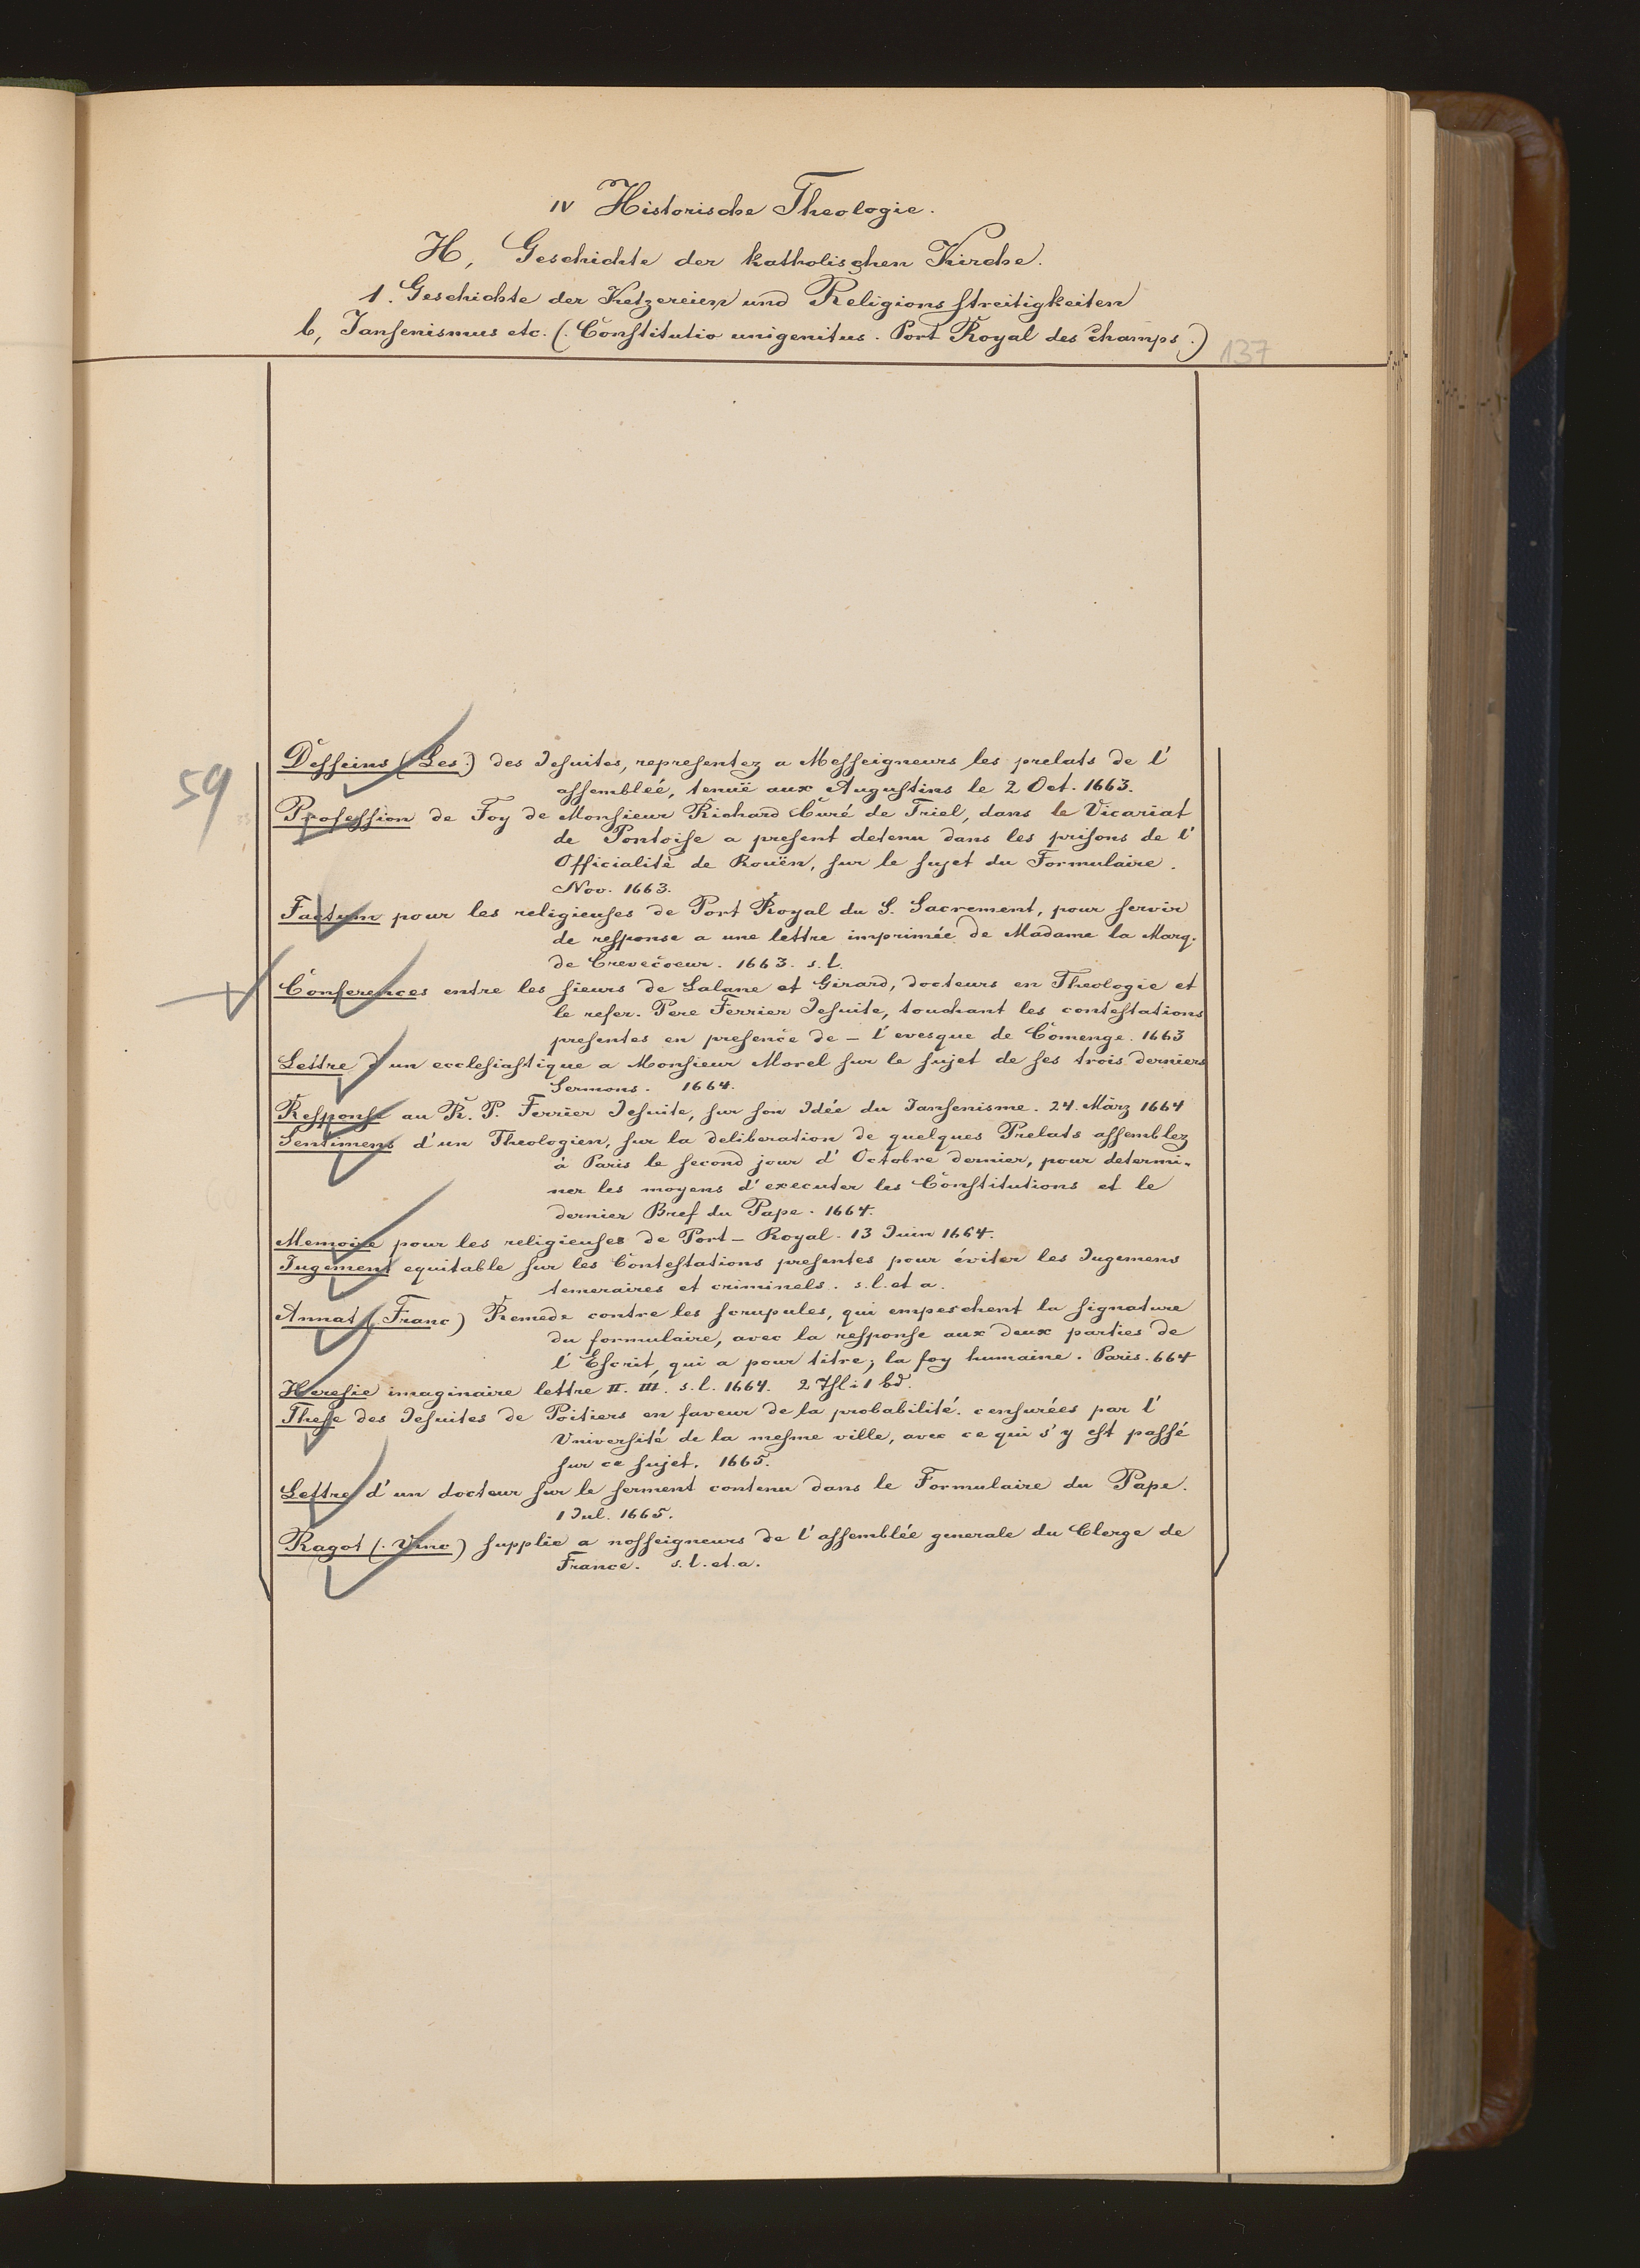 IV Historische Theologie.
H, Geschichte der katholischen Kirche.
1. Geschichte der Ketzereien und Religionsstreitigkeiten
b, Jansenismus etc. (Constitutio unigenitus. Port Royal des Champs.)
137
59
Desseins (Les.) des Jesuites, representez a Messeigneurs les prelats de l'
assembleé, tenuë aux Augustins le 2 Oct. 1663.
Profession de Foy de Monsieur Richard Curé de Triel, dans le Vicariat
de Pontoise a present detenu dans les prisons de l'
Officialité de Rouën, sur le sujet du Formulaire.
Nov. 1663.
Factum pour les religieuses de Port Royal du S. Sacrement, pour servir
de response a une lettre imprimée de Madame la Marq.
de Crevecoeur. 1663. s.l.
Conferences entre les sieurs de Lalane et Girard, docteurs en Theologie et
le refer. Pere Ferrier Jesuite, touchant les contestations
presentes en presence de – l'evesque de Comenge. 1663
Lettre d'un ecclesiastique a Monsieur Morel sur le sujet de ses trois derniers
Sermons. 1664.
Response au R. P. Ferrier Jesuite, sur son Idée du Jansenisme. 24. März 1664
Sentimens d'un Theologien, sur la deliberation de quelques Prelats assemblez
à Paris le second jour d'Octobre dernier, pour determi-
ner les moyens d'executer les Constitutions et le
dernier Bref du Pape. 1664.
Memoire pour les religieuses de Port-Royal. 13 Juin 1664.
Jugement equitable sur les Contestations presentes pour éviter les Jugemens
temeraires et criminels. s.l. et a.
Annat (Franc) Remede contre les scrupules, qui empeschent la signature
du formulaire, avec la response aux deux parties de
l'Escrit, qui a pour titre; la foy humaine. Paris. 664
Heresie imaginaire lettre II. III. s.l. 1664. 2 Thl i 1 bd.
These des Jesuites de Poitiers en faveur de la probabilité. censurées par l'
Université de la mesme ville, avec ce qui s'y est passé
sur ce sujet. 1665.
Lettre d'un docteur sur le serment contenu dans le Formulaire du Pape.
1 Jul. 1665.
Ragot (Vinc) supplie a nosseigneurs de l'assemblée generale du Clerge de
France. s.l. et. a.